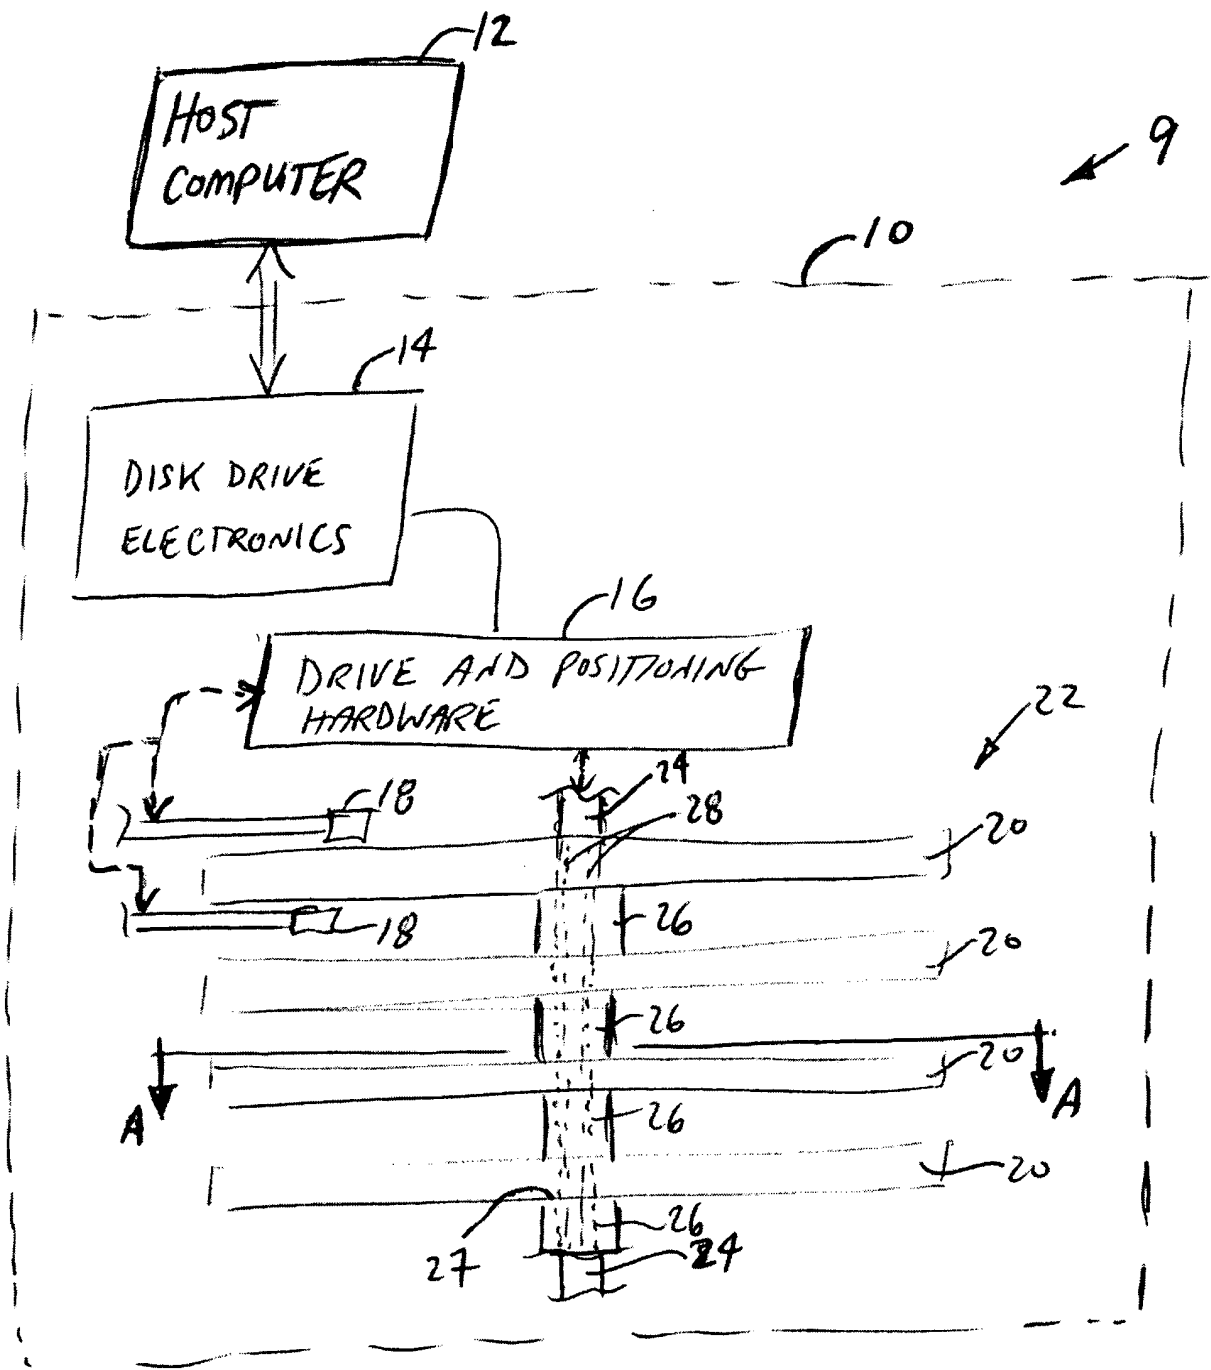 12
HOST
COMPUTER
9
10
14
DISK DRIVE
ELECTRONICS
16
DRIVE AND POSITIONING
HARDWARE
22
24
18
28
20
26
18
20
26
20
A
A
26
20
26
27
24